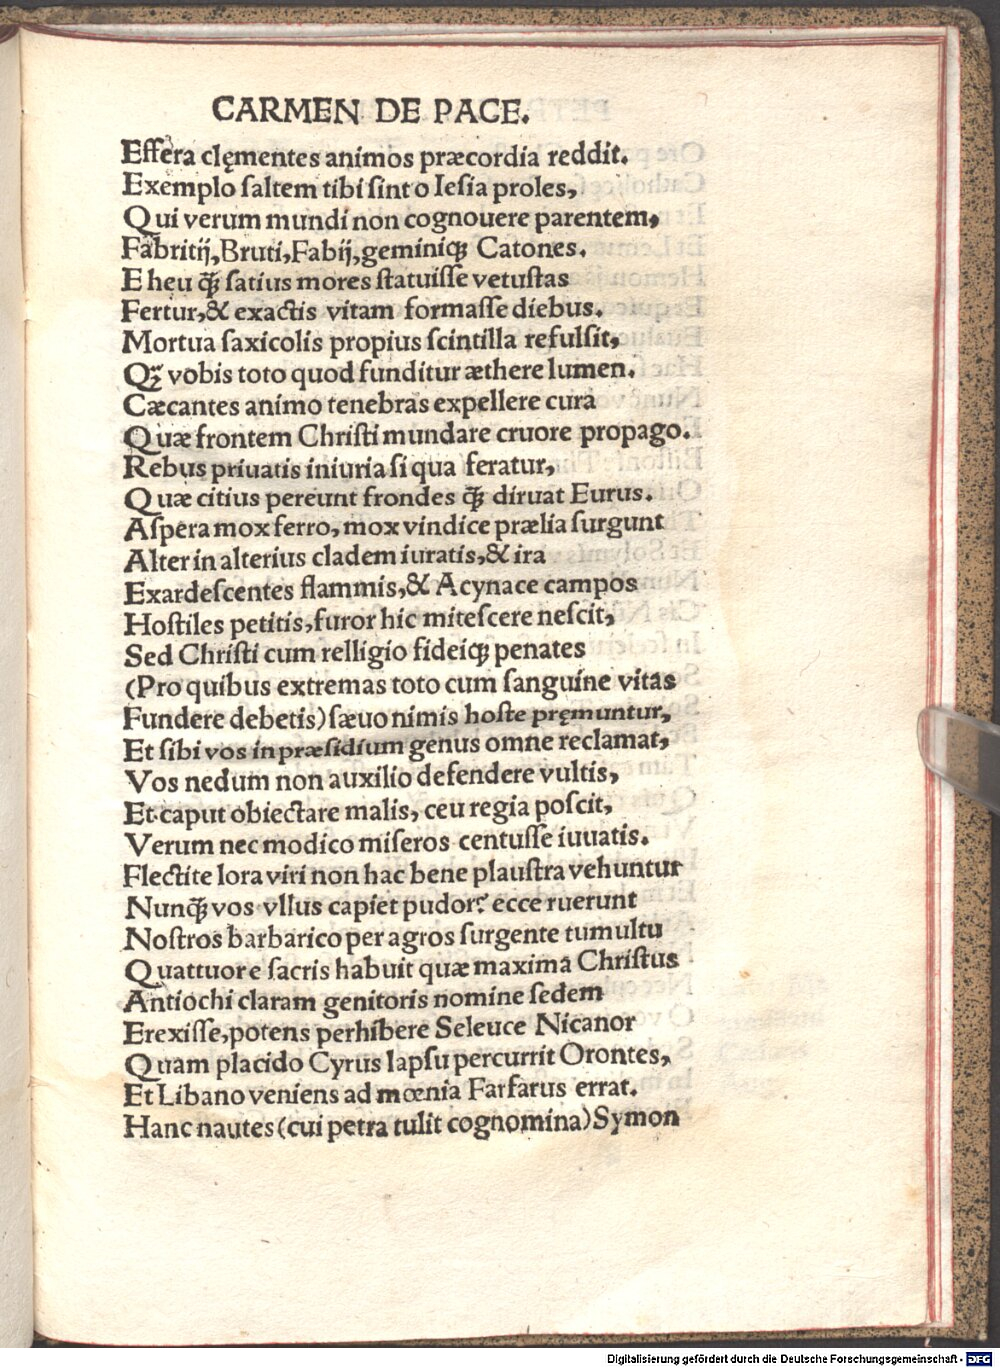 CARMEN DE PACE.
Effera clęmentes animos præcordia reddit.
Exemplo ſaltem tibi ſint o Ieſia proles,
Qui verum mundi non cognouere parentem,
Fabritij, Bruti, Fabij, geminiqꝫ Catones.
Eheu qꝫ̃ ſatius mores ſtatuiſſe vetuſtas
Fertur, & exactis vitam formaſſe diebus.
Mortua ſaxicolis propius ſcintilla refulſit,
Qꝫ̃ vobis toto quod funditur æthere lumen.
Cæcantes animo tenebras expellere cura
Quæ frontem Chriſti mundare cruore propago.
Rebus priuatis iniuria ſi qua feratur,
Quæ citius pereunt frondes qꝫ̃ diruat Eurus.
Aſpera mox ferro, mox vindice prælia ſurgunt
Alter in alterius cladem iuratis, & ira
Exardeſcentes flammis, & Acynace campos
Hoſtiles petitis, furor hic miteſcere neſcit,
Sed Chriſti cum relligio fideiqꝫ penates
(Pro quibus extremas toto cum ſanguine vitas
Fundere debetis) ſæuo nimis hoſte pręmuntur,
Et ſibi vos in præſidium genus omne reclamat,
Vos nedum non auxilio defendere vultis,
Et caput obiectare malis, ceu regia poſcit,
Verum nec modico miſeros centuſſe iuuatis.
Flectite lora viri non hac bene plauſtra vehuntur
Nunqꝫ̃ vos vllus capiet pudor? ecce ruerunt
Noſtros barbarico per agros ſurgente tumultu
Quattuor e ſacris habuit quæ maxima Chriſtus
Antiochi claram genitoris nomine ſedem
Erexiſſe, potens perhibere Seleuce Nicanor
Quam placido Cyrus lapſu percurrit Orontes,
Et Libano veniens ad mœnia Farfarus errat.
Hanc nautes (cui petra tulit cognomina) Symon
Digitalisierung gefördert durch die Deutsche Forschungsgemeinschaft - DFG